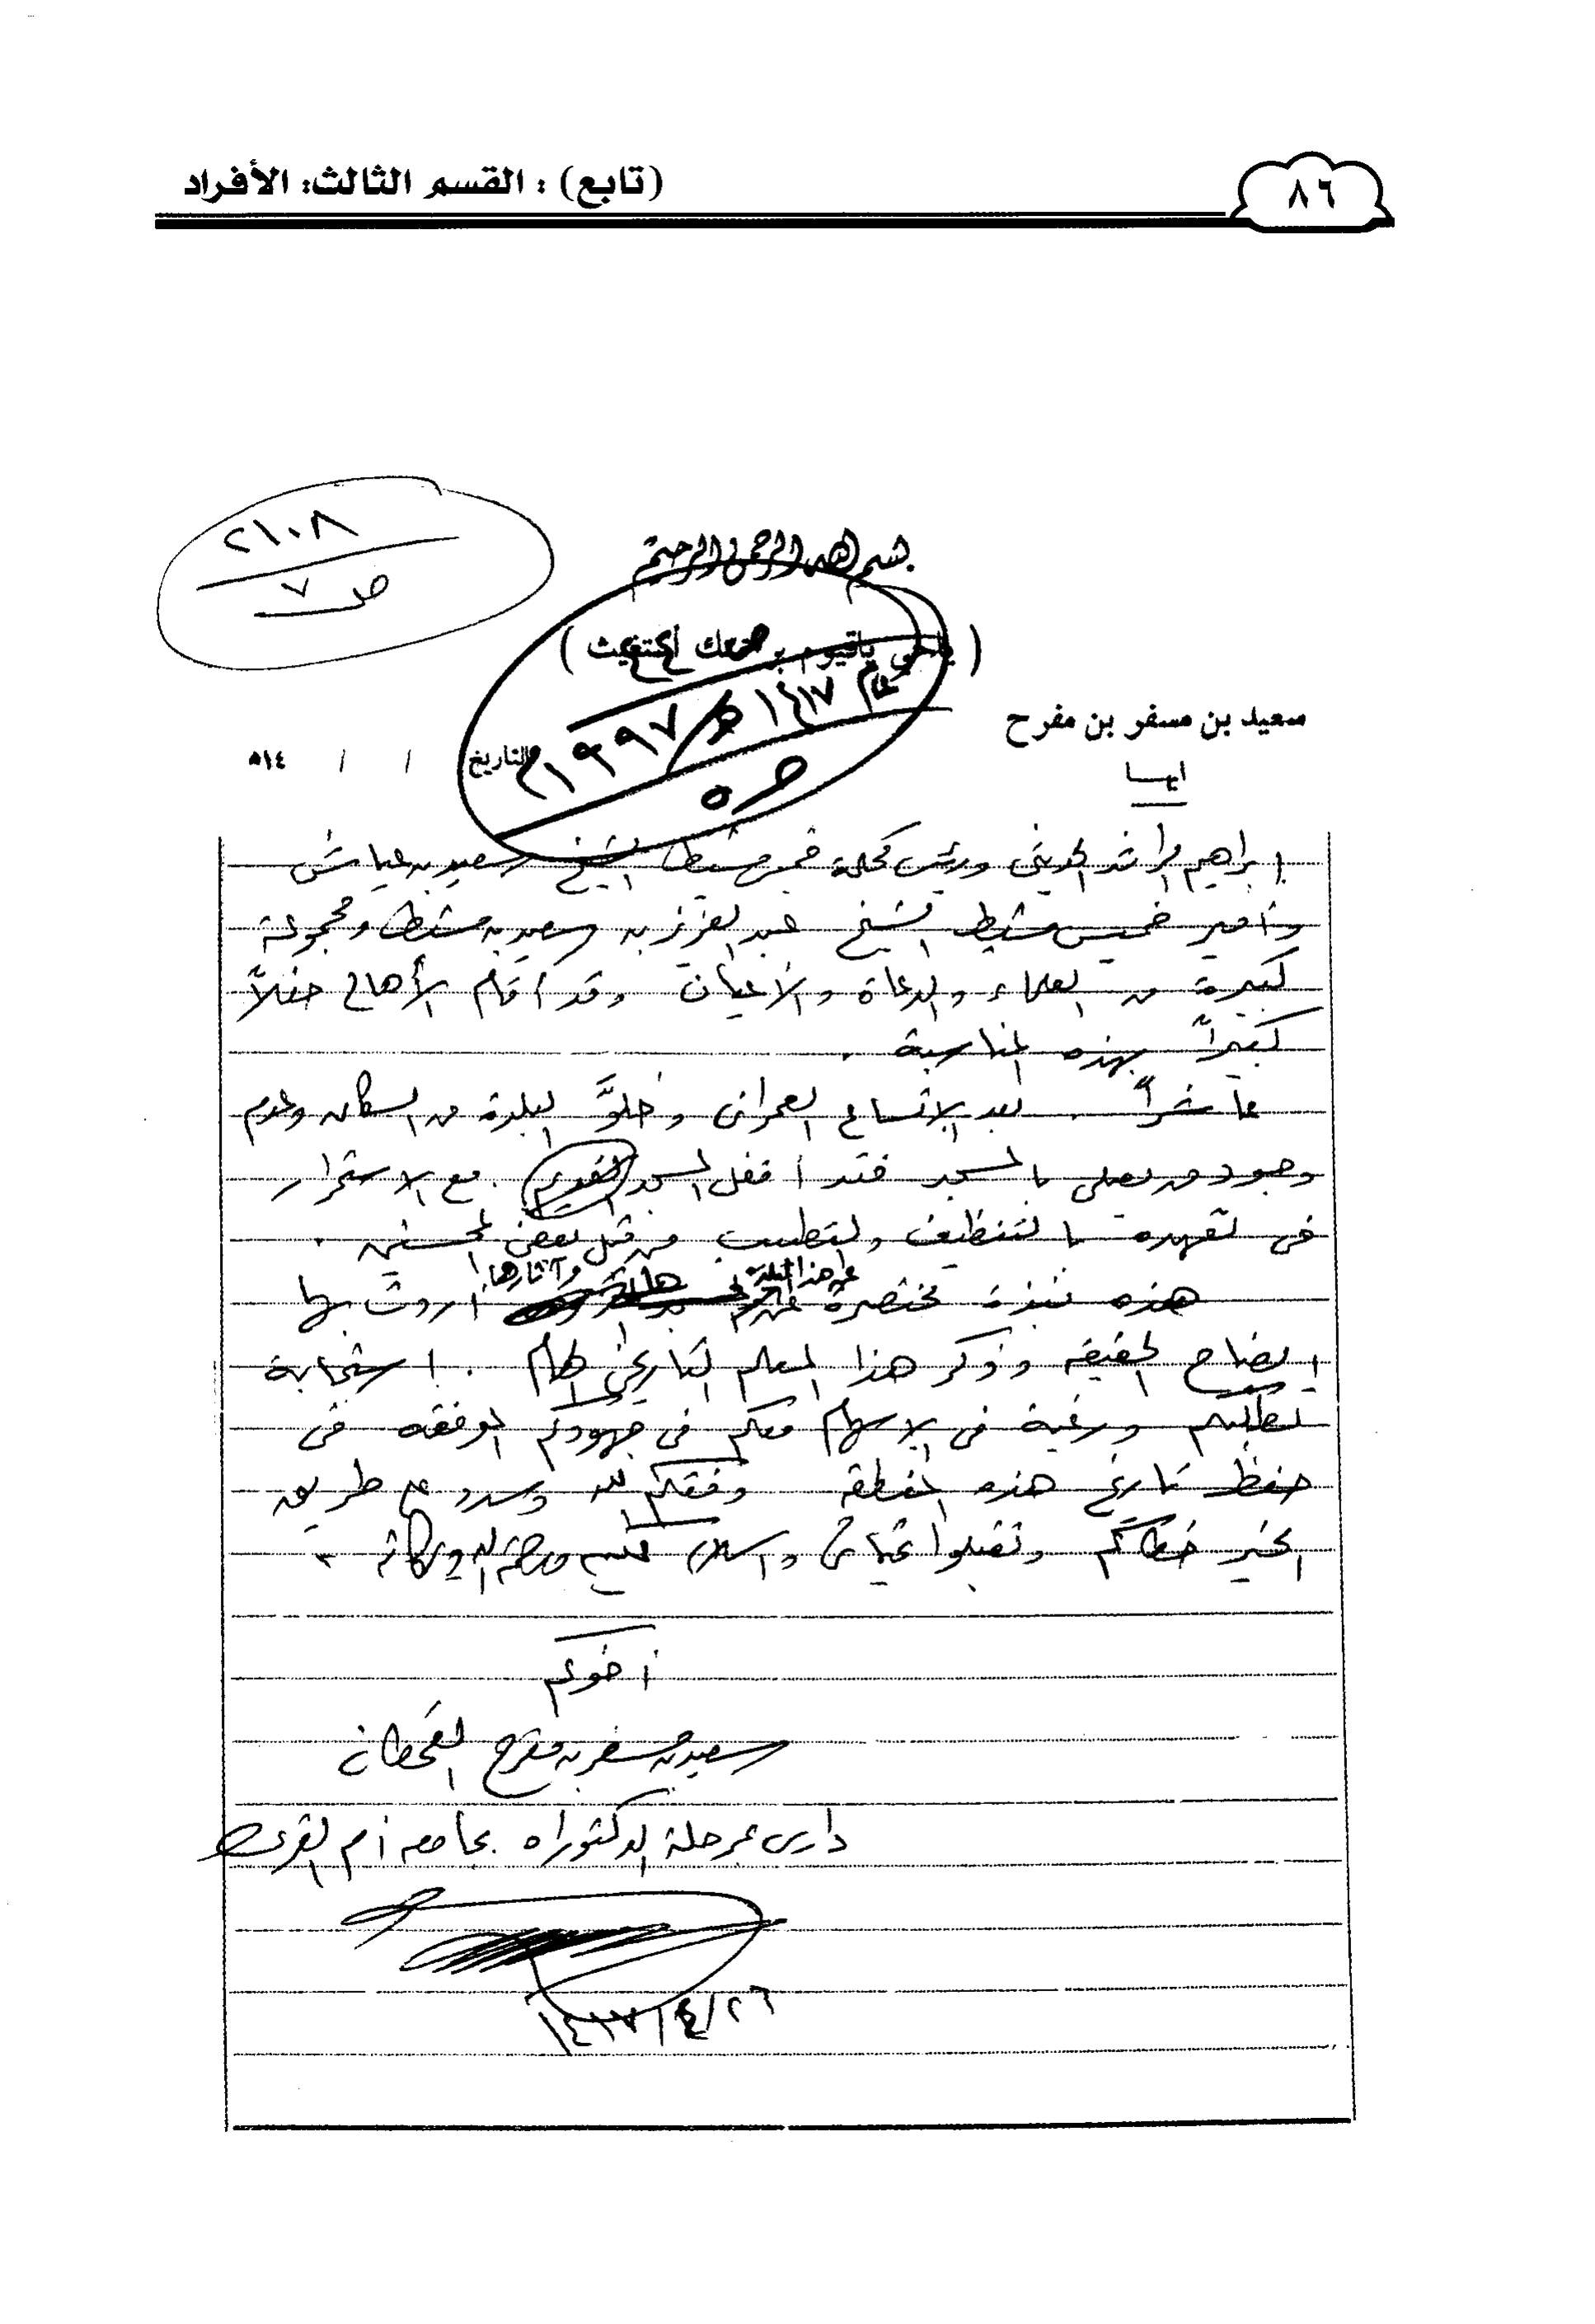 (تابع) : القسم الثالث: الأفراد
٨٦
٢١٠٨
ص ٧
بسم الله الرحمن الرحيم
(ياحي ياقيوم برحمتك أستغيث)
عام ١٤١٧هـ/١٩٩٧م
ص ٥
سعيد بن مسفر بن مفرح
ابها
التاريخ / / ١٤هـ
ابراهيم الراشد الحديثي ورئيس محكمة خميس مشيط الشيخ سعيد بن عياش
وأمير خميس مشيط الشيخ عبد العزيز بن سعيد بن مشيط ومجموعة
كبيرة من العلماء والدعاة والأعيان وقد أقام الأهالي حفلاً
كبيراً بهذه المناسبة .
عاشراً . بعد الاتساع العمراني وخلوَّ البلدة من السكان وعدم
وجود من يصلي بالمسجد فقد أقفل المسجد القديم . مع الاستمرار
في تعهده بالتنظيف والتطييب من قبل بعض المحسنين .
هذه نبذة مختصرة عن هذا البلدة وآثارها أردت بها
ايضاح الحقيقة وذكر هذا المعلم التاريخي الهام . استجابة
لطلبكم ورغبة في الاسهام معكم في جهودكم الموفقة في
حفظ تاريخ هذه المنطقة وفقكم الله وسدد على طريق
الخير خطاكم وتقبلوا تحياتي والسلام عليكم ورحمة الله وبركاته .
أخوكم
سعيد بن مسفر بن مفرح القحطاني
دارس بمرحلة الدكتوراه بجامعة أم القرى
٢٦/٤/١٤١٧